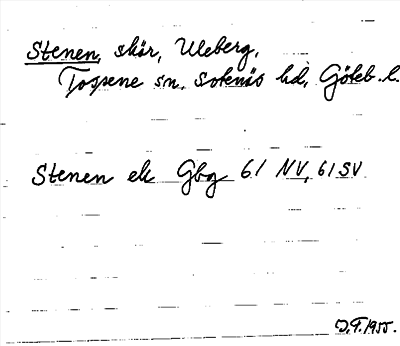 Stenen, skär, Uleberg,
Tossene sn. Sotenäs hd, Göteb. l.
Stenen ek Gbg 61 NV, 61 SV
D.F. 1955.